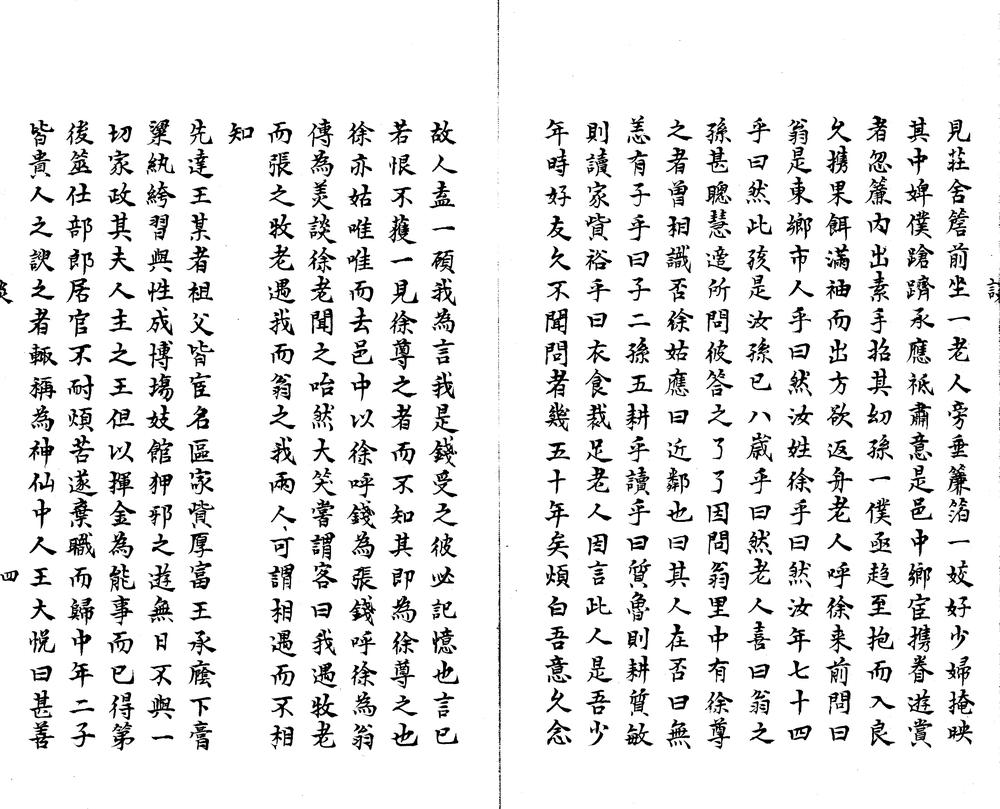 見莊舍簷前坐一老人旁垂簾箔一姣好少婦掩映
其中婢僕蹌躋承應祗肅意是邑中鄉宦攜眷遊賞
者忽簾內出素手招其幼孫一僕亟趋至抱而入良
久攜果餌滿袖而出方欲返舟老人呼徐来前問曰
翁是東鄉市人乎曰然汝姓徐乎曰然汝年七十四
乎曰然此孩是汝孫已八嵗乎曰然老人喜曰翁之
孫甚聰慧造所問彼答之了了因問翁里中有徐尊
之者曾相識否徐姑應曰近鄰也曰其人在否曰無
恙有子乎曰子二孫五耕乎讀乎曰質魯則耕質敏
則讀家貲裕乎曰衣食裁足老人因言此人是吾少
年時好友久不聞問者幾五十年矣煩白吾意久念
故人盍一顧我為言我是錢受之彼必記憶也言已
若恨不獲一見徐尊之者而不知其即為徐尊之也
徐亦姑唯唯而去邑中以徐呼錢為張錢呼徐為翁
傳為美談徐老聞之咍然大笑嘗謂客曰我遇牧老
而張之牧老遇我而翁之我兩人可謂相遇而不相
知
先達王某者祖父皆宦名區家貲厚富王承廕下膏
粱紈絝習與性成博塲妓館狎邪之遊無日不與一
切家政其夫人主之王但以揮金為能事而已得第
後筮仕部郎居官不耐煩苦遂棄職而歸中年二子
皆貴人之諛之者輒稱為神仙中人王大悅曰甚善
四